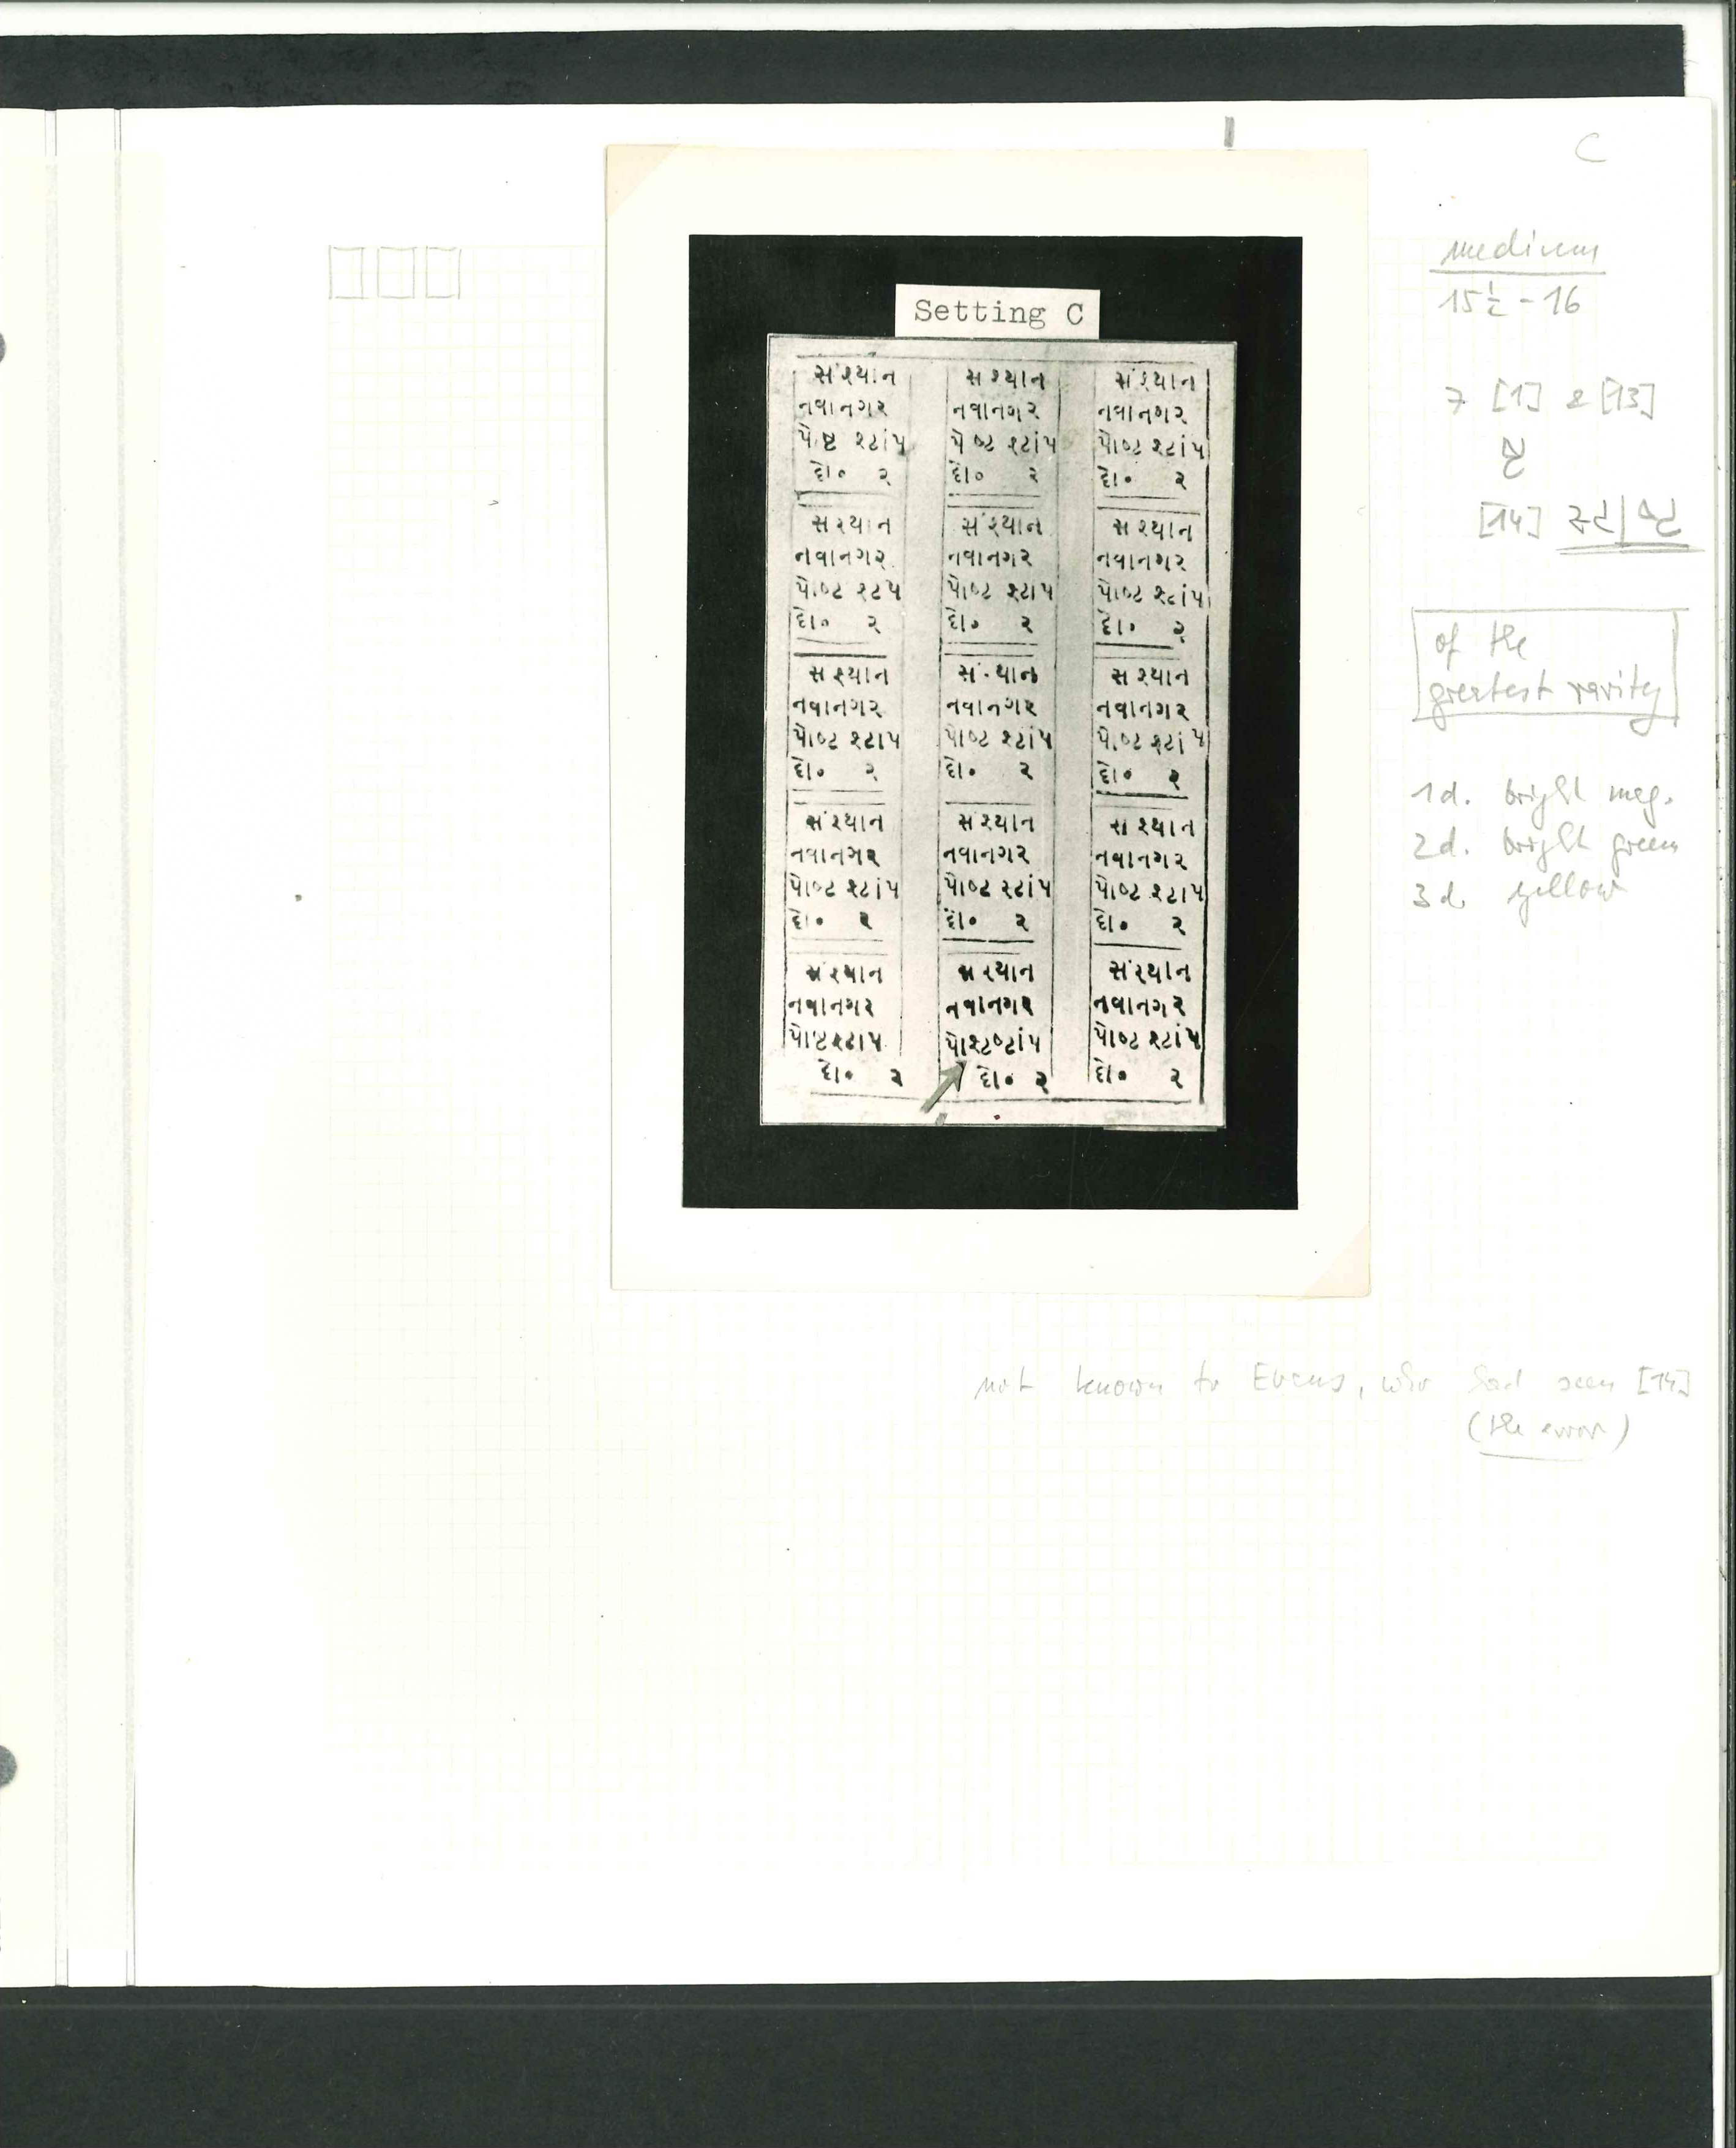 C
medium
15½ - 16
[1] & [13]
[14] સ્ટ | ષ્ટ
of the
greatest rarity
1d. bright mag.
2d. bright green
3d. yellow
Setting C
સંસ્થાન સસ્થાન સંસ્થાન
નવાનગર નવાનગર નવાનગર
પેષ્ટ સ્ટાંપ પેષ્ટ સ્ટાંપ પોષ્ટ સ્ટાંપ
દો૦ ૨ દો૦ ૨ દો૦ ૨
સસ્થાન સંસ્થાન સસ્થાન
નવાનગર નવાનગર નવાનગર
પોષ્ટ સ્ટપ પોષ્ટ સ્ટાપ પોષ્ટ સ્ટાંપ
દો૦ ૨ દો૦ ૨ દો૦ ૨
સસ્થાન સં થાન સસ્થાન
નવાનગર નવાનગર નવાનગર
પોષ્ટ સ્ટાપ પોષ્ટ સ્ટાંપ પોષ્ટ સ્ટાંપ
દો૦ ૨ દો૦ ૨ દો૦ ૨
સંસ્થાન સંસ્થાન સસ્થાન
નવાનગર નવાનગર નવાનગર
પોષ્ટ સ્ટાંપ પોષ્ટ સ્ટાંપ પોષ્ટ સ્ટાપ
દો૦ ૨ દો૦ ૨ દો૦ ૨
સંસ્થાન સસ્થાન સંસ્થાન
નવાનગર નવાનગર નવાનગર
પોષ્ટસ્ટાપ પોસ્ટષ્ટાંપ પોષ્ટ સ્ટાંપ
દો૦ ૨ દો૦ ૨ દો૦ ૨
not known to Evans, who had seen [14]
(the error)